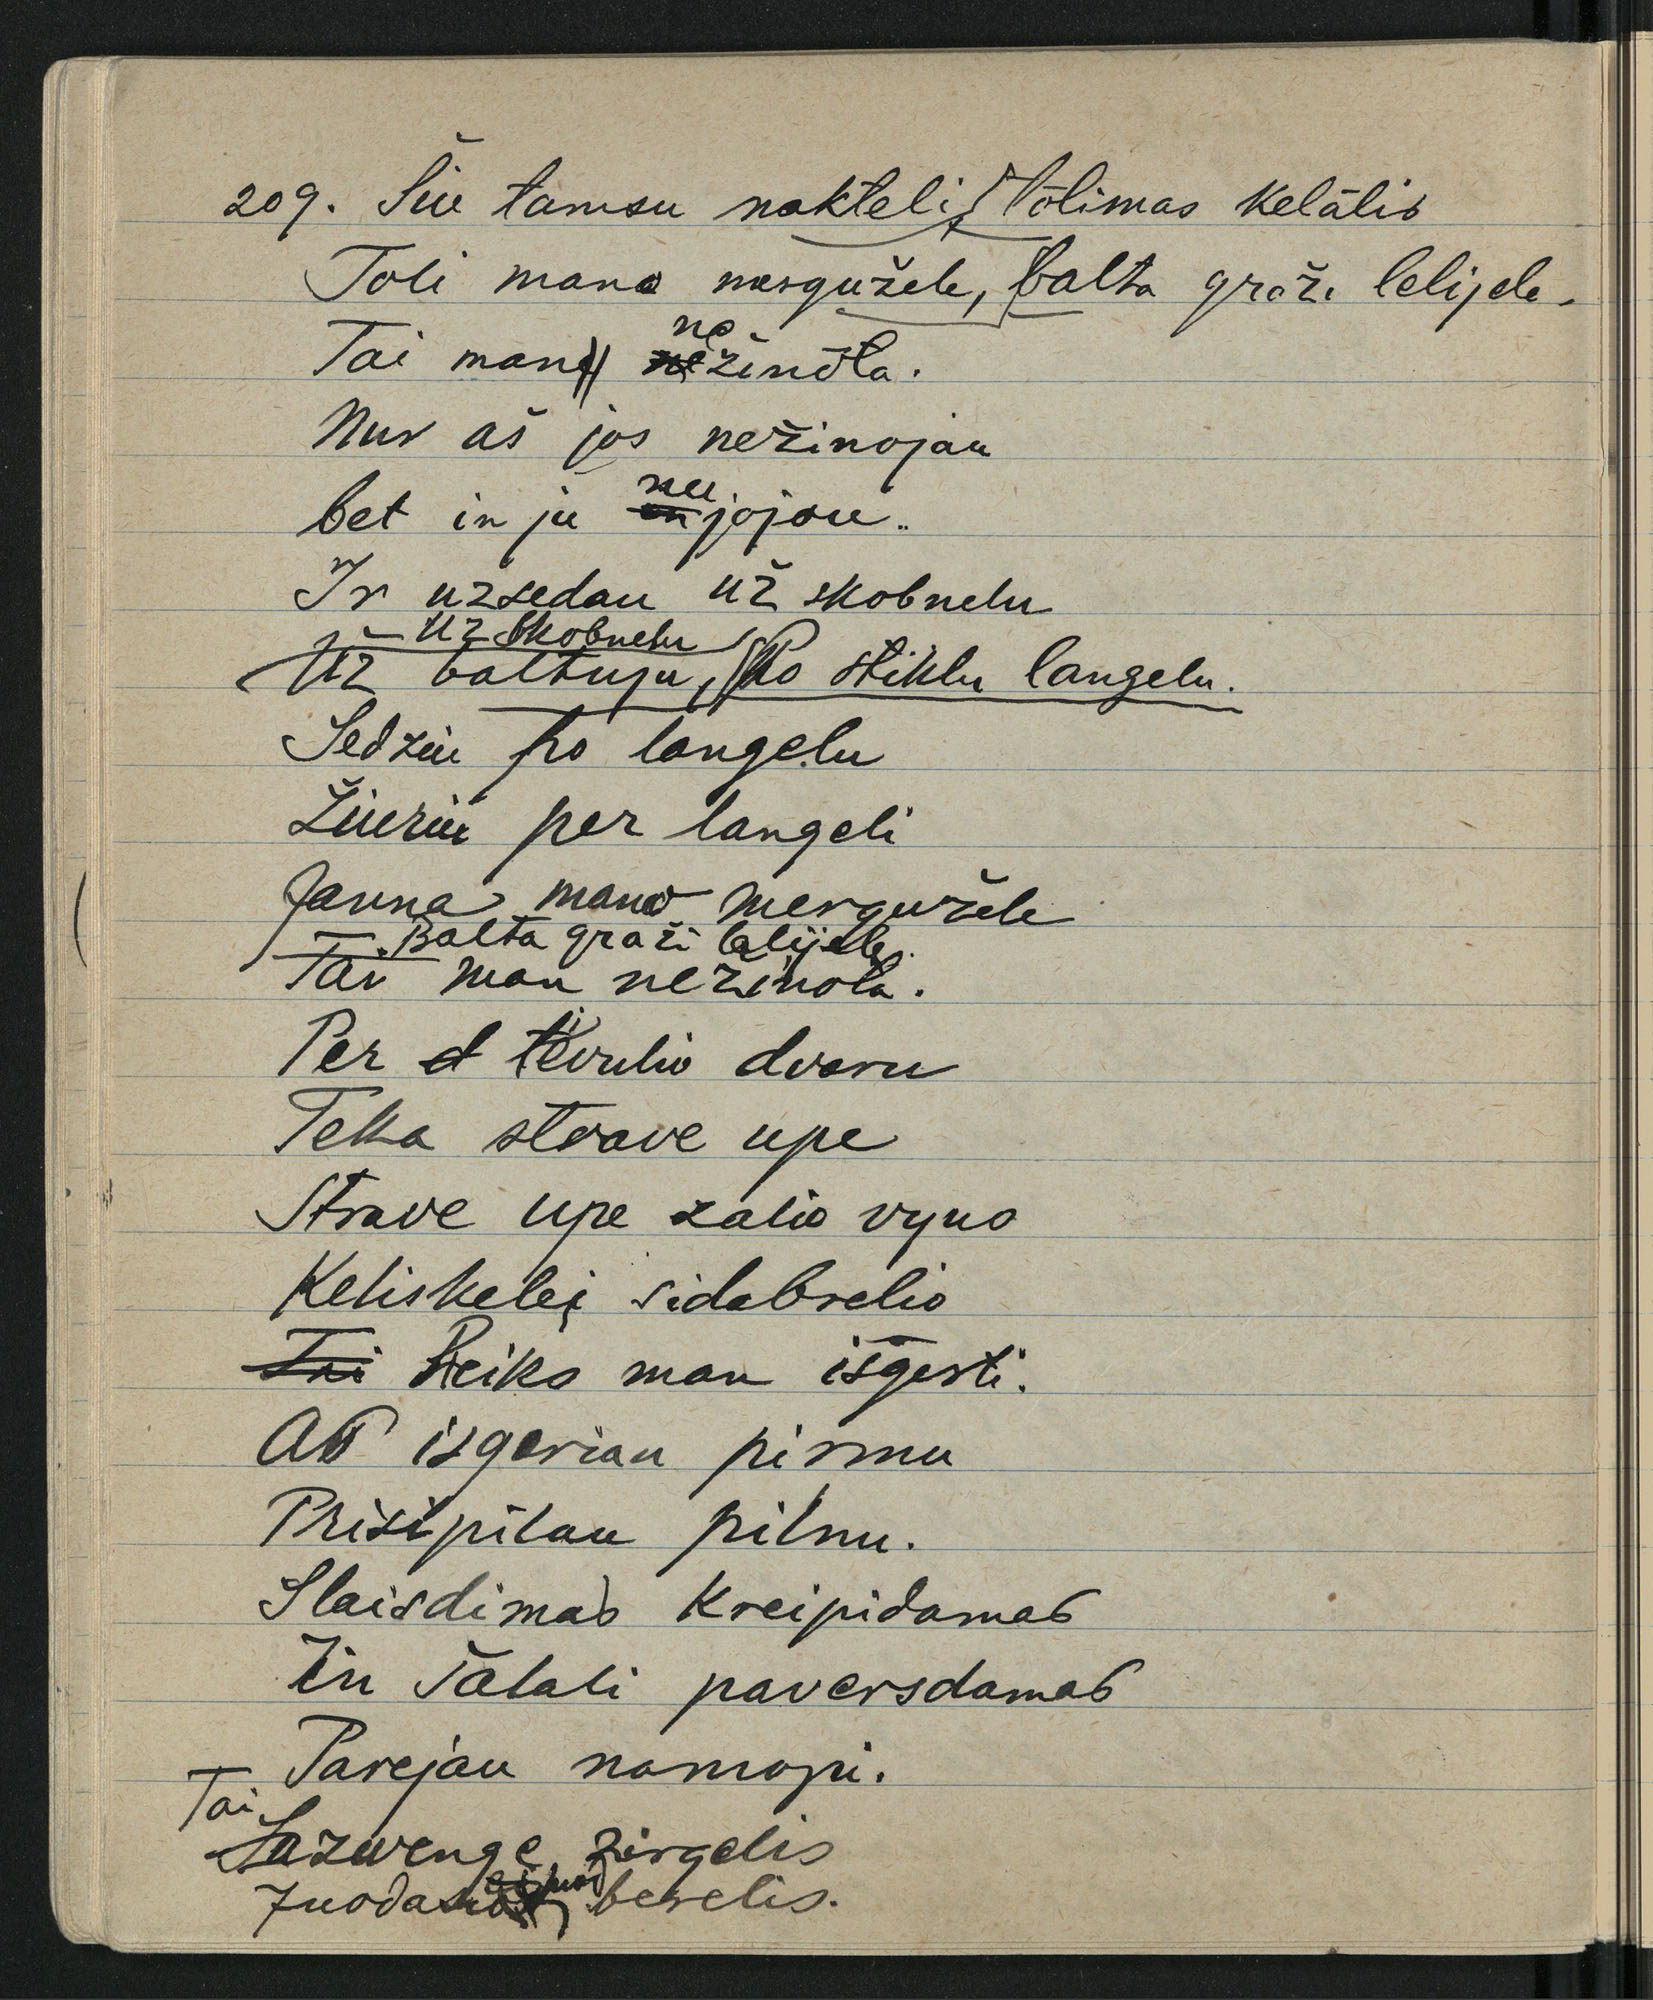 209. Šiu tamsu nakteli, Tōlimas kelālis
Toli mano merguželе, balta graži lelijele.
Tai man nežinōta.
Nur aš jos nežinojau
bet in ju nujojau.
Ir uzsedau už skobnelu
Už skobnelu
Už baltuju, Po stiklu langelu.
Sedziu po langelu
Žiuriu per langeli
Jauna mano merguželе
Balta graži lelijele.
Tai man nežinota.
Per d tievulio dvaru
Teka strove upe
Strove upe zalio vyno
Keliskelei sidabrelio
Tai Reiks man išgerti.
Aš isgeriau pirmu
Prisipilau pilnu.
Slaisdimas kreipidamas
In šālali paversdamas
Parejau namopi.
Tai
Sazvenge zirgelis
berelis.